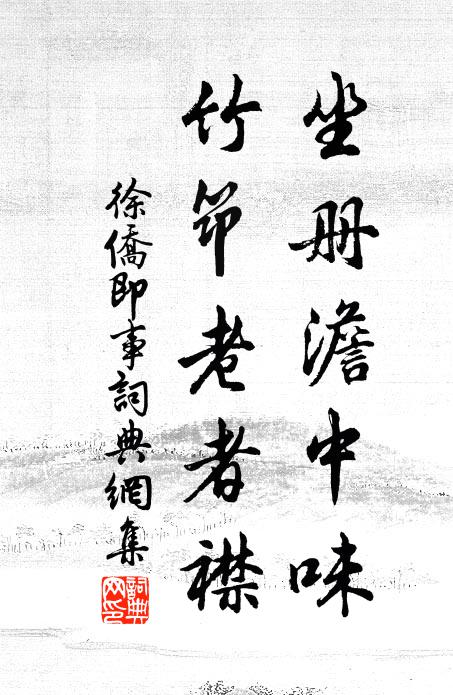 坐册澹中味
竹笻老者襟
徐僑即事詞典網集